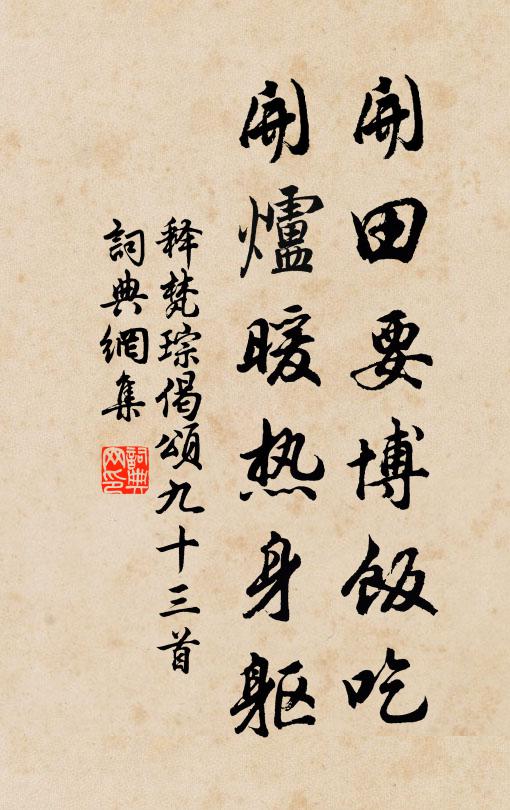 開田要博飯吃
開爐暖热身躯
释梵琮偈頌九十三首
詞典網集
詞典网印